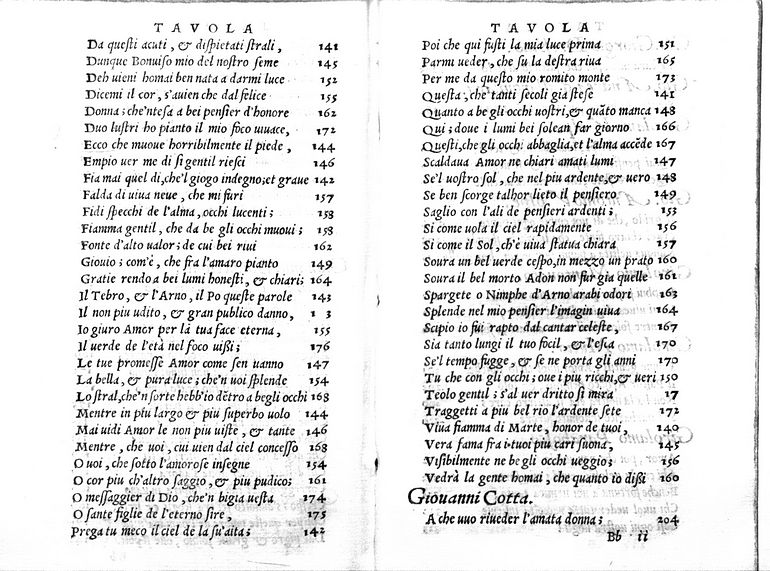 TAVOLA
Da questi acuti, & dispietati strali, 141
Dunque Bonuiso mio del nostro seme 145
Deh uieni homai ben nata a darmi luce 152
Dicemi il cor, s'auien che dal felice 155
Donna; che'ntesa a bei pensier d'honore 162
Duo lustri ho pianto il mio foco uiuace, 172
Ecco che muoue horribilmente il piede, 144
Empio uer me di si gentil riesci 146
Fia mai quel di, che'l giogo indegno; et graue 142
Falda di uiua neue, che mi furi 157
Fidi specchi de l'alma, occhi lucenti; 158
Fiamma gentil, che da be gli occhi muoui; 158
Fonte d'alto ualor; de cui bei riui 162
Giouio; com'è, che fra l'amaro pianto 149
Gratie rendo a bei lumi honesti, & chiari; 164
Il Tebro, & l'Arno, il Po queste parole 143
Il non piu udito, & gran publico danno, 1 3
Io giuro Amor per la tua face eterna, 155
Il uerde de l'età nel foco uissi; 176
Le tue promesse Amor come sen uanno 147
La bella, & pura luce; che'n uoi splende 154
Lo stral, che'n sorte hebb'io dẽtro a begli occhi 168
Mentre in piu largo & piu superbo uolo 144
Mai uidi Amor le non piu uiste, & tante 146
Mentre, che uoi, cui uien dal ciel concesso 168
O uoi, che sotto l'amorose insegne 154
O cor piu ch'altro saggio, & piu pudico; 161
O messaggier di Dio, che'n bigia uesta 174
O sante figlie de l'eterno sire, 175
Prega tu meco il ciel de la su'aita; 142
TAVOLA
Poi che qui fusti la mia luce prima 151
Parmi ueder, che su la destra riua 165
Per me da questo mio romito monte 173
Questa, che tanti secoli gia stese 141
Quanto a be gli occhi uostri, & quãto manca 148
Qui; doue i lumi bei solean far giorno 166
Questi, che gli occhi abbaglia, et l'alma accẽde 167
Scaldaua Amor ne chiari amati lumi 147
Se'l uostro sol, che nel piu ardente, & uero 148
Se ben scorge talhor lieto il pensiero 149
Saglio con l'ali de pensieri ardenti; 153
Si come uola il ciel rapidamente 156
Si come il Sol, ch'è uiua statua chiara 157
Soura un bel uerde cespo, in mezzo un prato 160
Soura il bel morto Adon non fur gia quelle 161
Spargete o Nimphe d'Arno arabi odori 163
Splende nel mio pensier l'imagin uiua 164
Scipio io fui rapto dal cantar celeste, 167
Sia tanto lungi il tuo focil, & l'esca 170
Se'l tempo fugge, & se ne porta gli anni 170
Tu che con gli occhi; oue i piu ricchi, & ueri 150
Teolo gentil; s'al uer dritto si mira 17
Traggetti a piu bel rio l'ardente sete 172
Viua fiamma di Marte, honor de tuoi, 140
Vera fama fra i tuoi piu cari suona, 145
Visibilmente ne be gli occhi ueggio; 156
Vedrà la gente homai, che quanto io dissi 160
Giouanni Cotta.
A che uuo riueder l'amata donna; 204
Bb ii